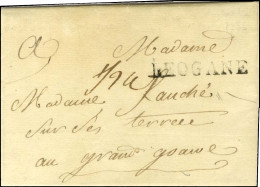 Madame
LEOGANE
Madame Fauché
sur ses terres
au grand goave